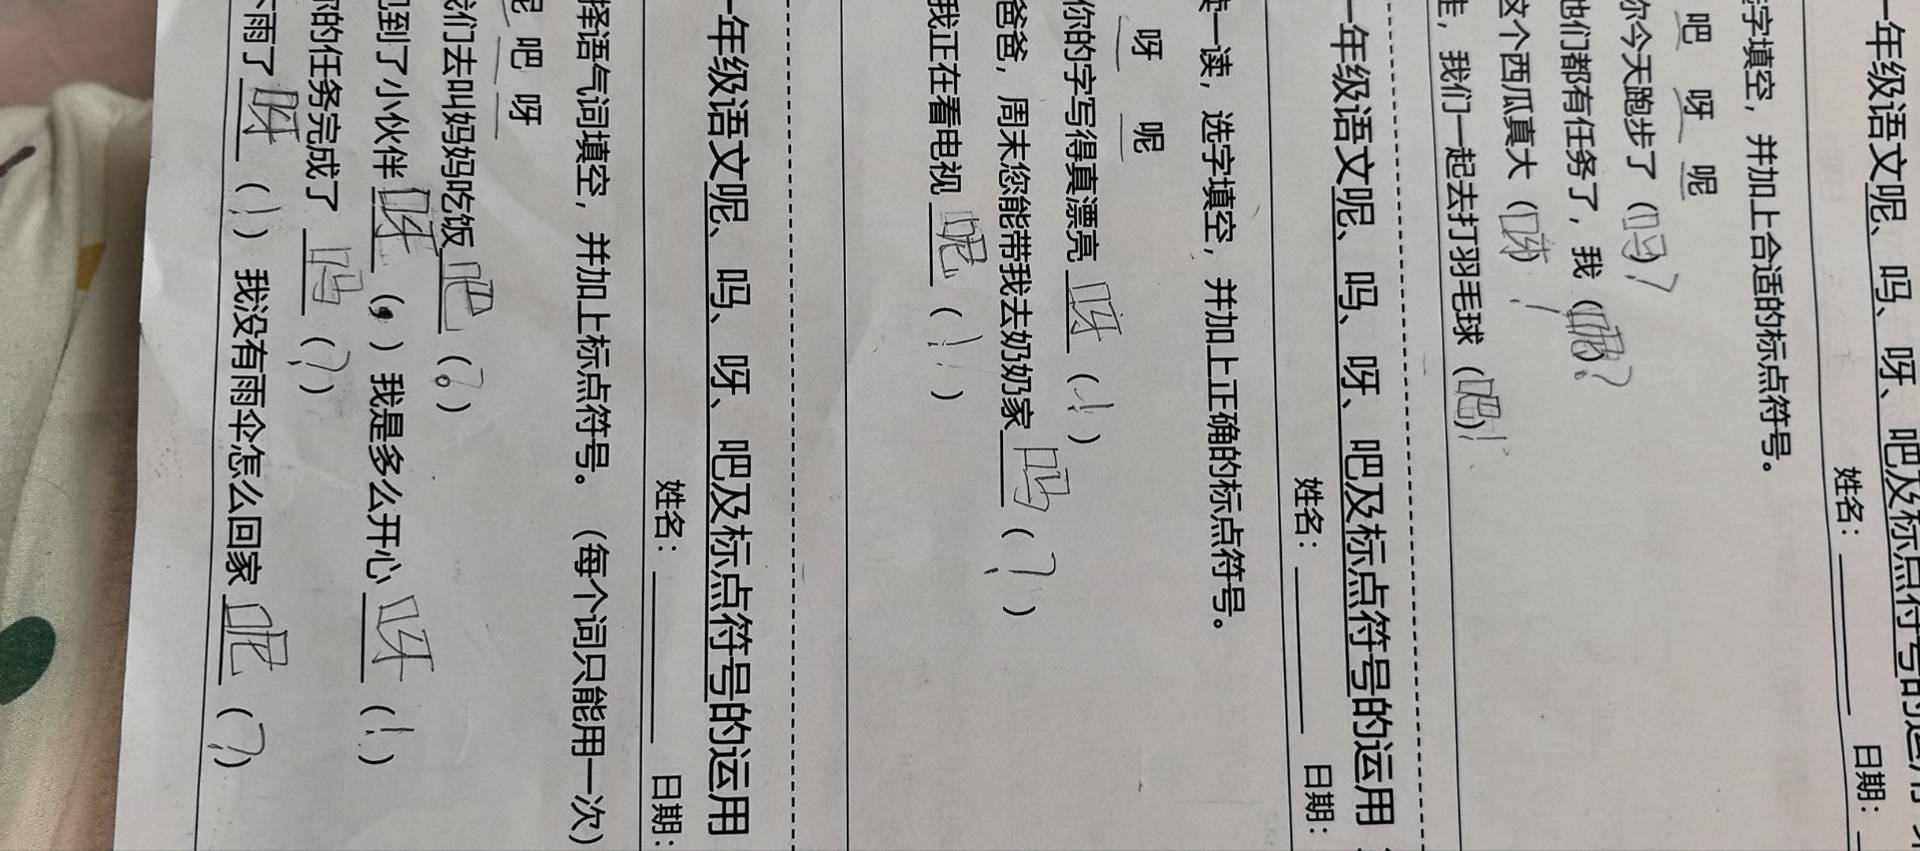 一年级语文呢、吗、呀、吧及标点符号的运用
姓名： 日期：
字填空，并加上合适的标点符号。
吧 呀 呢
你今天跑步了（吗）？
他们都有任务了，我（呢）？
这个西瓜真大（ ）！
，我们一起去打羽毛球（吧）！
一年级语文呢、吗、呀、吧及标点符号的运用
姓名： 日期：
读一读，选字填空，并加上正确的标点符号。
呀 呢
你的字写得真漂亮呀（！）
爸爸，周末您能带我去奶奶家吗（？）
我正在看电视呢（！）
一年级语文呢、吗、呀、吧及标点符号的运用
姓名： 日期：
择语气词填空，并加上标点符号。（每个词只能用一次）
呢 吧 呀
我们去叫妈妈吃饭吧（。）
见到了小伙伴呀（，）我是多么开心呀（！）
你的任务完成了吗（？）
下雨了呀（！）我没有雨伞怎么回家呢（？）